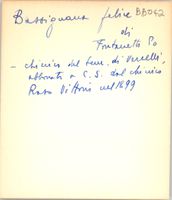 Bassignana felice BB042
di
Fontanetto Po
- chierico del Sem. di Vercelli,
abbonato a C.S. dal chierico
Rosa Vittorio nel 1899